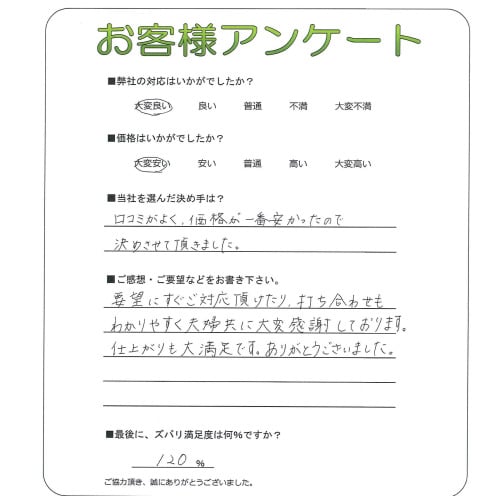 お客様アンケート
■弊社の対応はいかがでしたか？
大変良い 良い 普通 不満 大変不満
■価格はいかがでしたか？
大変安い 安い 普通 高い 大変高い
■当社を選んだ決め手は？
口コミがよく、価格が一番安かったので
決めさせて頂きました。
■ご感想・ご要望などをお書き下さい。
要望にすぐご対応頂けたり、打ち合わせも
わかりやすく夫婦共に大変感謝しております。
仕上がりも大満足です。ありがとうございました。
■最後に、ズバリ満足度は何％ですか？
120 ％
ご協力頂き、誠にありがとうございました。